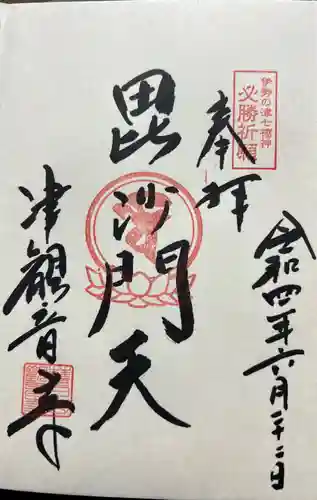 伊勢の津七福神
必勝祈願
奉拝
令和四年六月二十二日
毘沙門天
津観音寺